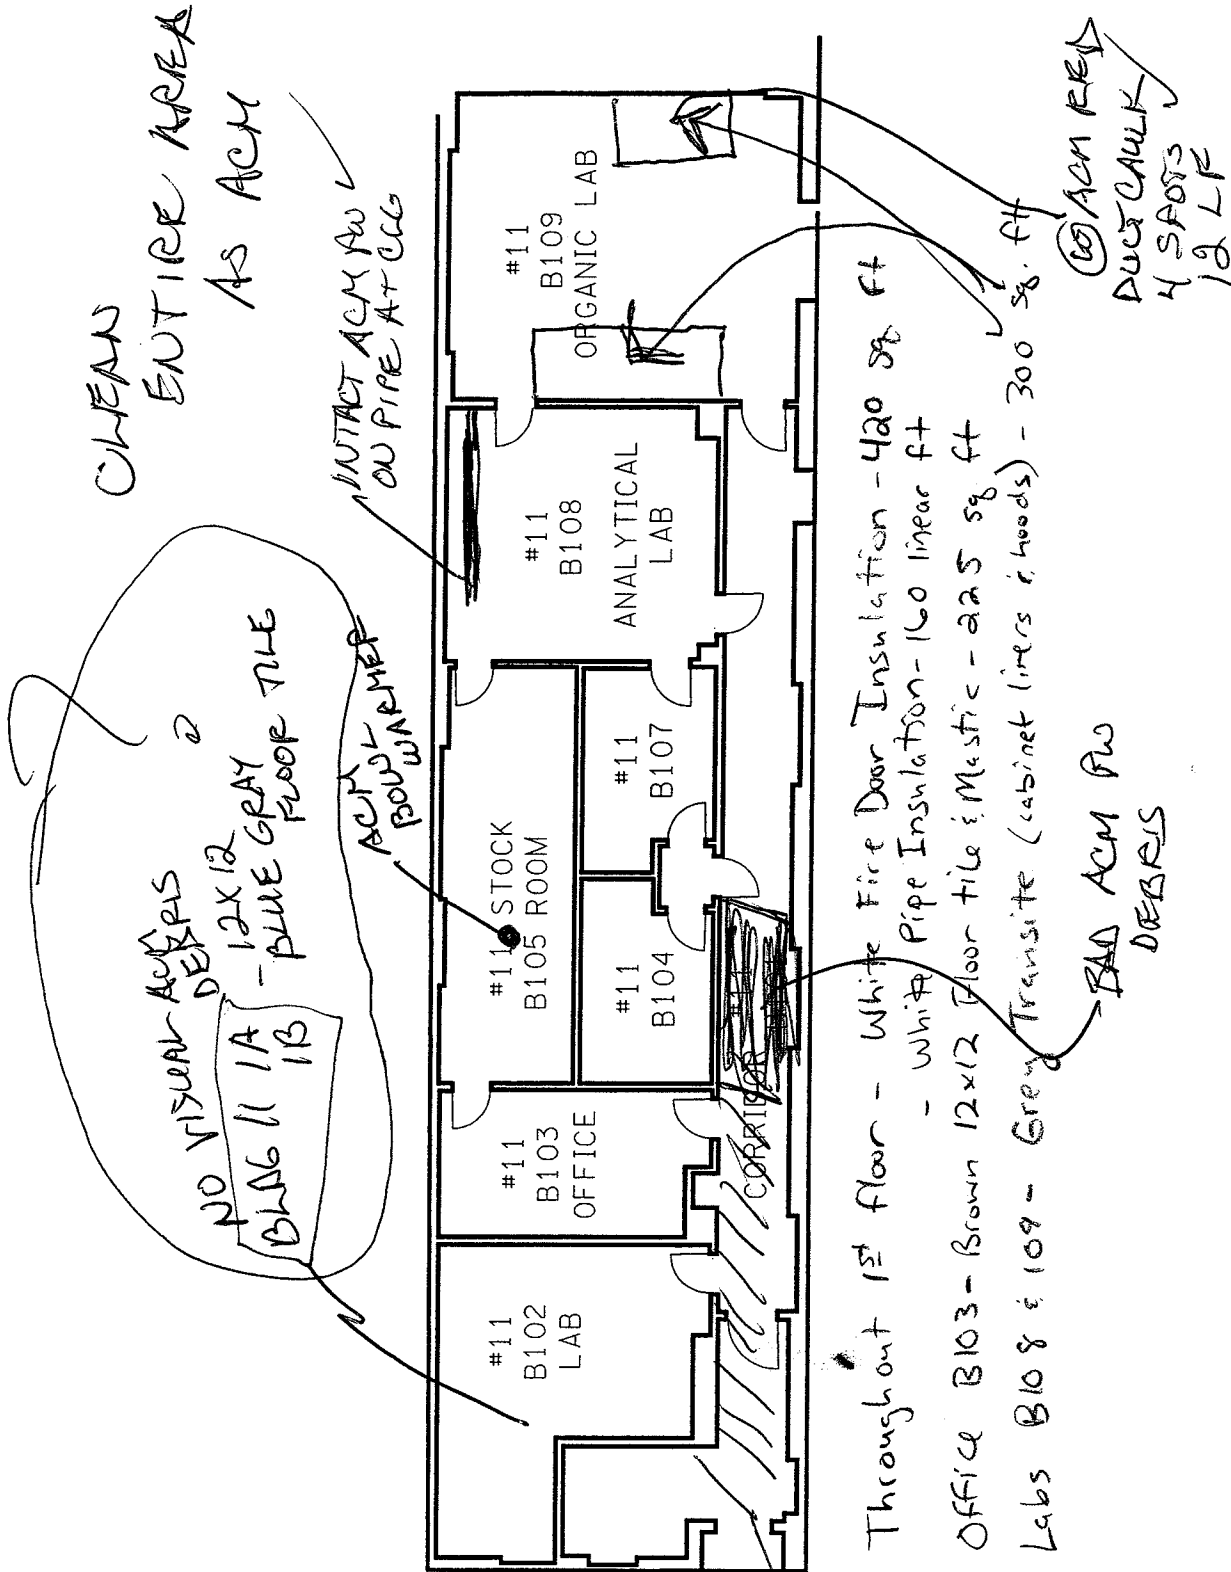 CLEAN
ENTIRE AREA
AS ACM
INTACT ACM PW
ON PIPE AT CLG
NO VISUAL ACM
DEBRIS
BLDG 11 1A
1B
- 12X12
BLUE GRAY
FLOOR TILE
ACM
BOWL
WARMER
#11
B102
LAB
#11
B103
OFFICE
#11 STOCK
B105 ROOM
#11
B104
#11
B107
#11
B108
ANALYTICAL
LAB
#11
B109
ORGANIC LAB
CORRIDOR
Throughout 1st floor - White Fire Door Insulation - 420 sq ft
- White Pipe Insulation - 160 linear ft
Office B103 - Brown 12x12 Floor tile & Mastic - 225 sq ft
Labs B108 & 109 - Grey Transite (cabinet liners & hoods) - 300 sq. ft
- BAD ACM PW
DEBRIS
ACM RED
DUCT CAULK
4 SPOTS
12 LF